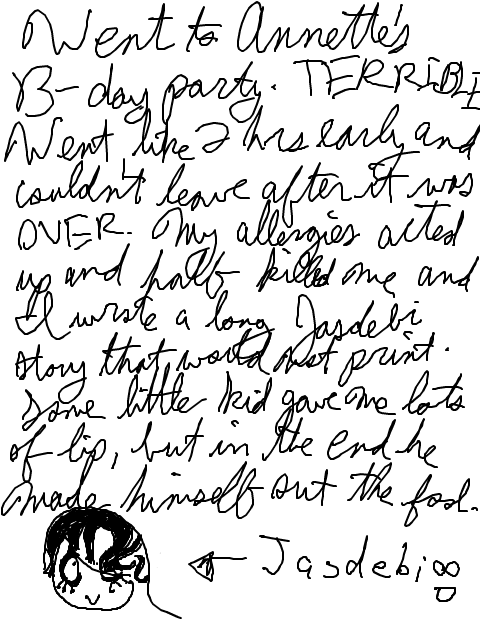 Went to Annette's
B-day party. TERRIBLE
Went like 2 hrs early and
couldn't leave after it was
OVER. My allergies acted
up and half killed me and
I wrote a long Jasdebi
story that would not print.
Some little kid gave me lots
of lip, but in the end he
made himself out the fool.
Jasdebi